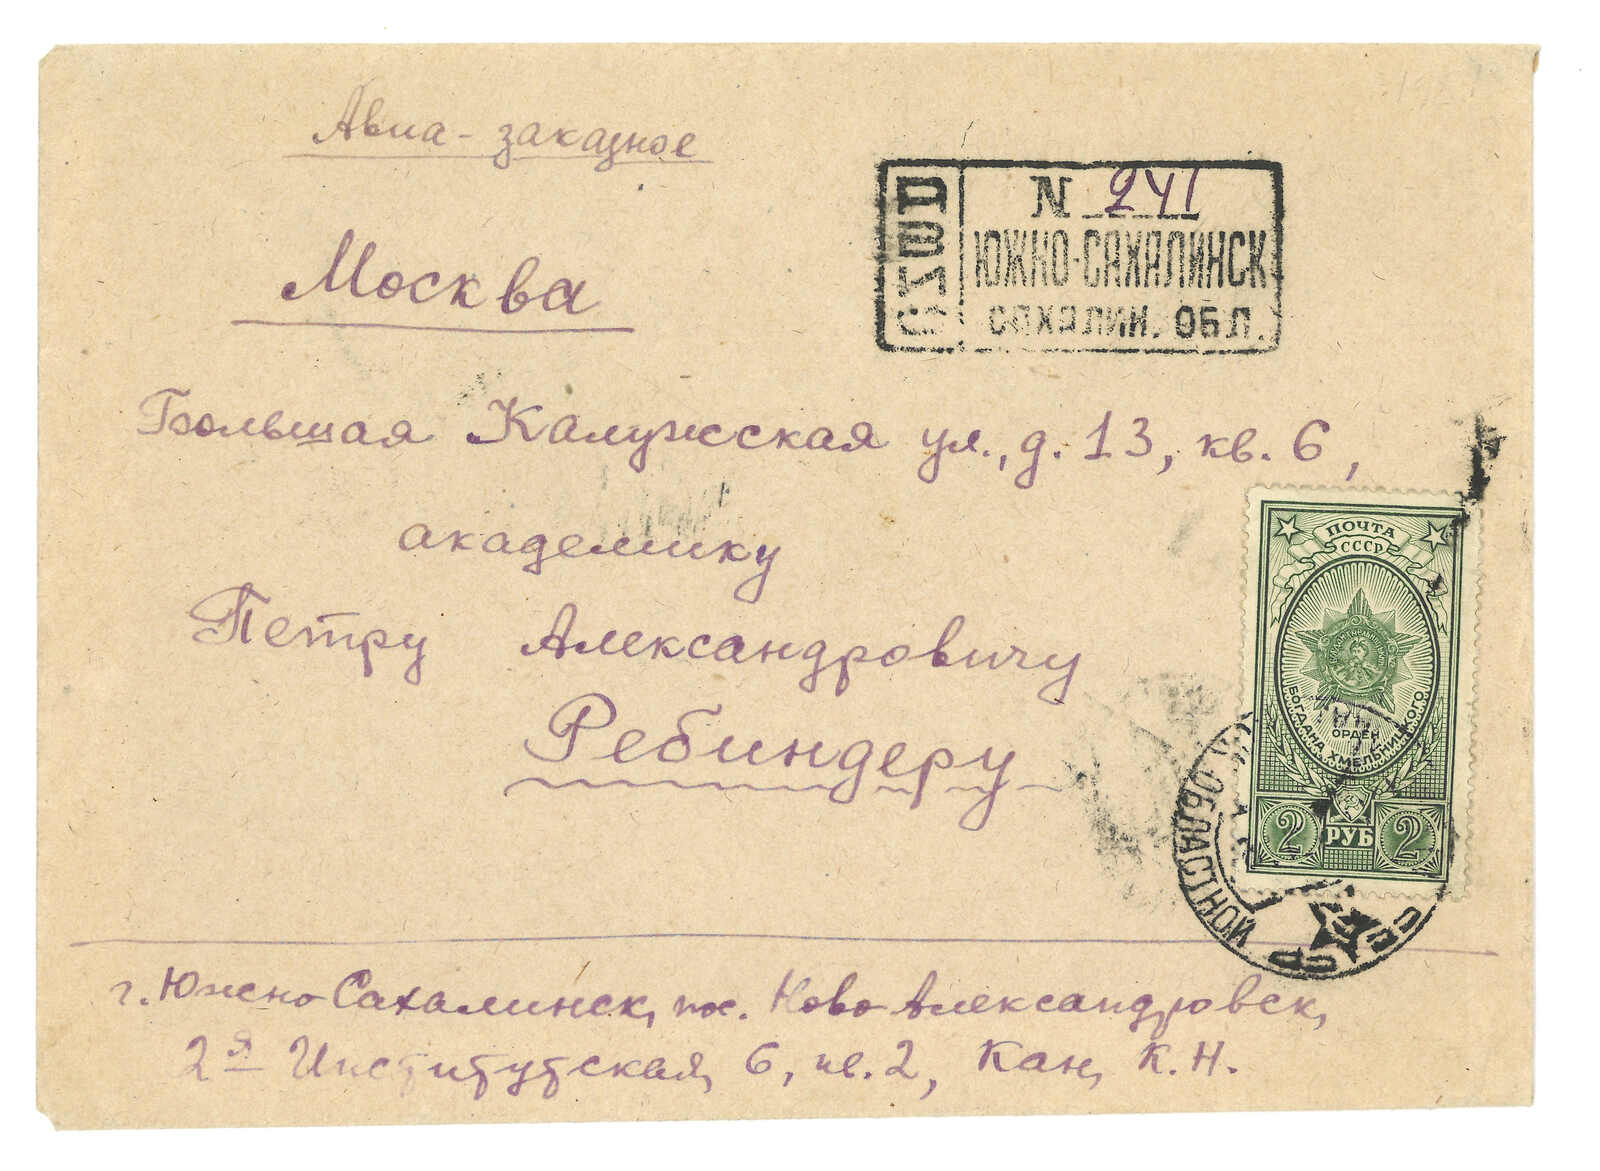 Авиа-заказное
N 241
ЮЖНО-САХАЛИНСК
САХАЛИН. ОБЛ.
Москва
Большая Калужская ул., д. 13, кв. 6,
академику
Петру Александровичу
Ребиндеру
ПОЧТА
СССР
БОГДАНА ХМЕЛЬНИЦКОГО
ОРДЕН
2 РУБ 2
ОБЛАСТНОЙ
г. Южно-Сахалинск, пос. Ново-Александровск,
2я Институтская, 6, кв. 2, Кан, К. Н.